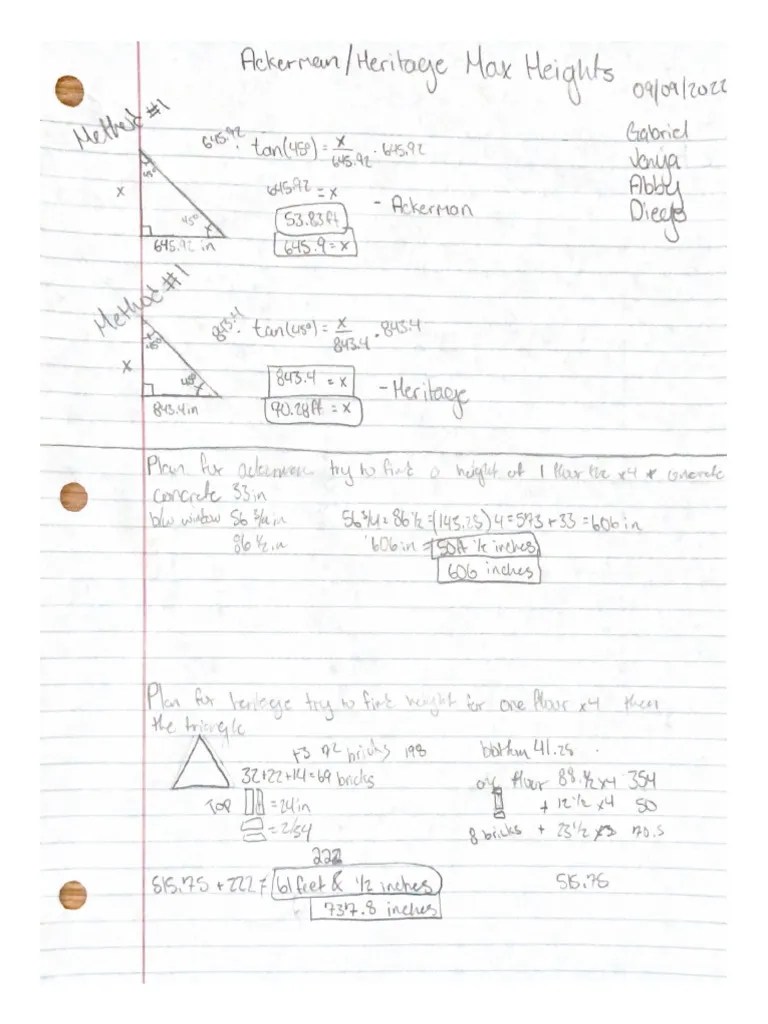 Ackerman/Heritage Max Heights
09/09/2022
Gabriel
Jonya
Abby
Diego
Method #1
645.92 · tan(45°) = x/645.92 · 645.92
45°
x
645.92 = x
- Ackerman
53.83ft
45°
x
645.9 = x
645.92 in
Method #1
843.4 · tan(45°) = x/843.4 · 843.4
x
45°
x
45°
x
843.4 = x
- Heritage
843.4in
70.28ft = x
Plan for ackerman try to find a height of 1 floor the x4 + concrete
concrete 33in
b/w window 56 3/4 in
56 3/4 = 86 1/2 = (143.25) 4 = 573 + 33 = 606 in
86 1/2 in
606 in = 50ft 1/2 inches
606 inches
Plan for heritage try to find height for one floor x4 then
the triangle
+3 72 bricks 198
bottom 41.25
32+22+14=69 bricks
floor 88.1/2 x4 354
TOP
= 24in
+ 12 1/2 x4 50
= 2/54
8 bricks + 23 1/2 x3 70.5
222
515.75 + 222 = 61 feet & 1/2 inches
515.75
737.8 inches